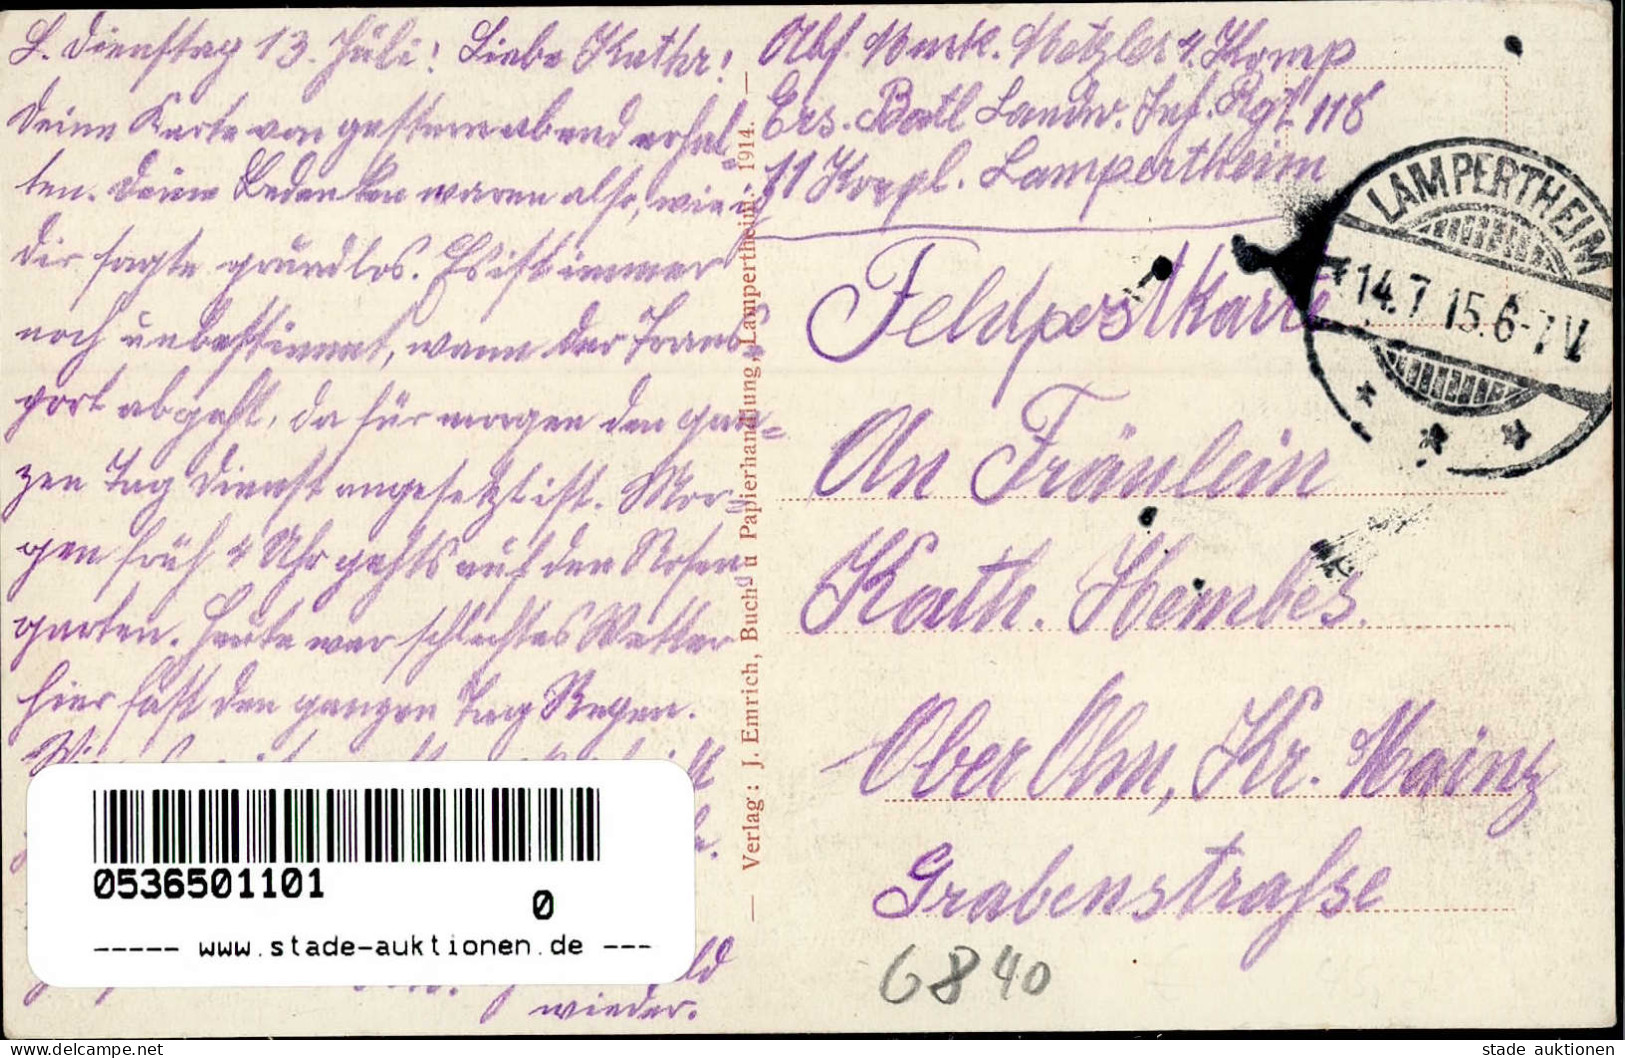 L. Dienstag 13. Jüli! Liebe Kathr!
Deine Karte von gestern abend erhal-
ten. Deine Bedenken waren also, wie ich
dir sagte gründlos. Es ist immer
noch ünbestimmt, wann der Trans-
port abgeht, da für morgen den gan-
zen Tag Dienst angesetzt ist. Mor-
gen früh 4 Uhr gehts auf den Rosen-
garten. Heute war schlechtes Wetter
hier fast den ganzen Tag Regen.
wieder.
Abs. Musk. Metzler 4. Komp
Ers. Batl Landw. Inf. Rgt 118
11 Korpl. Lampertheim
Feldpostkarte
An Fräulein
Kath. Hembes.
Ober Olm, Kr. Mainz
Grabenstraße
6840
LAMPERTHEIM
14.7.15.6-7V
— Verlag: J. Emrich, Buch- u Papierhandlung, Lampertheim. 1914. —
0536501101
0
----- www.stade-auktionen.de ---
www.delcampe.net
stade auktionen